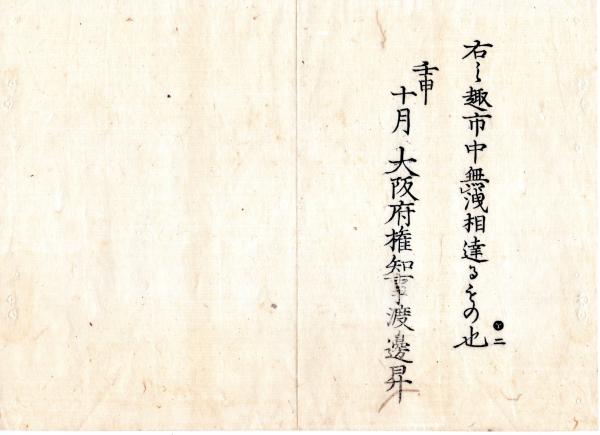 右之趣市中無洩相達るもの也
二
壬申
十月 大阪府権知事渡邊昇